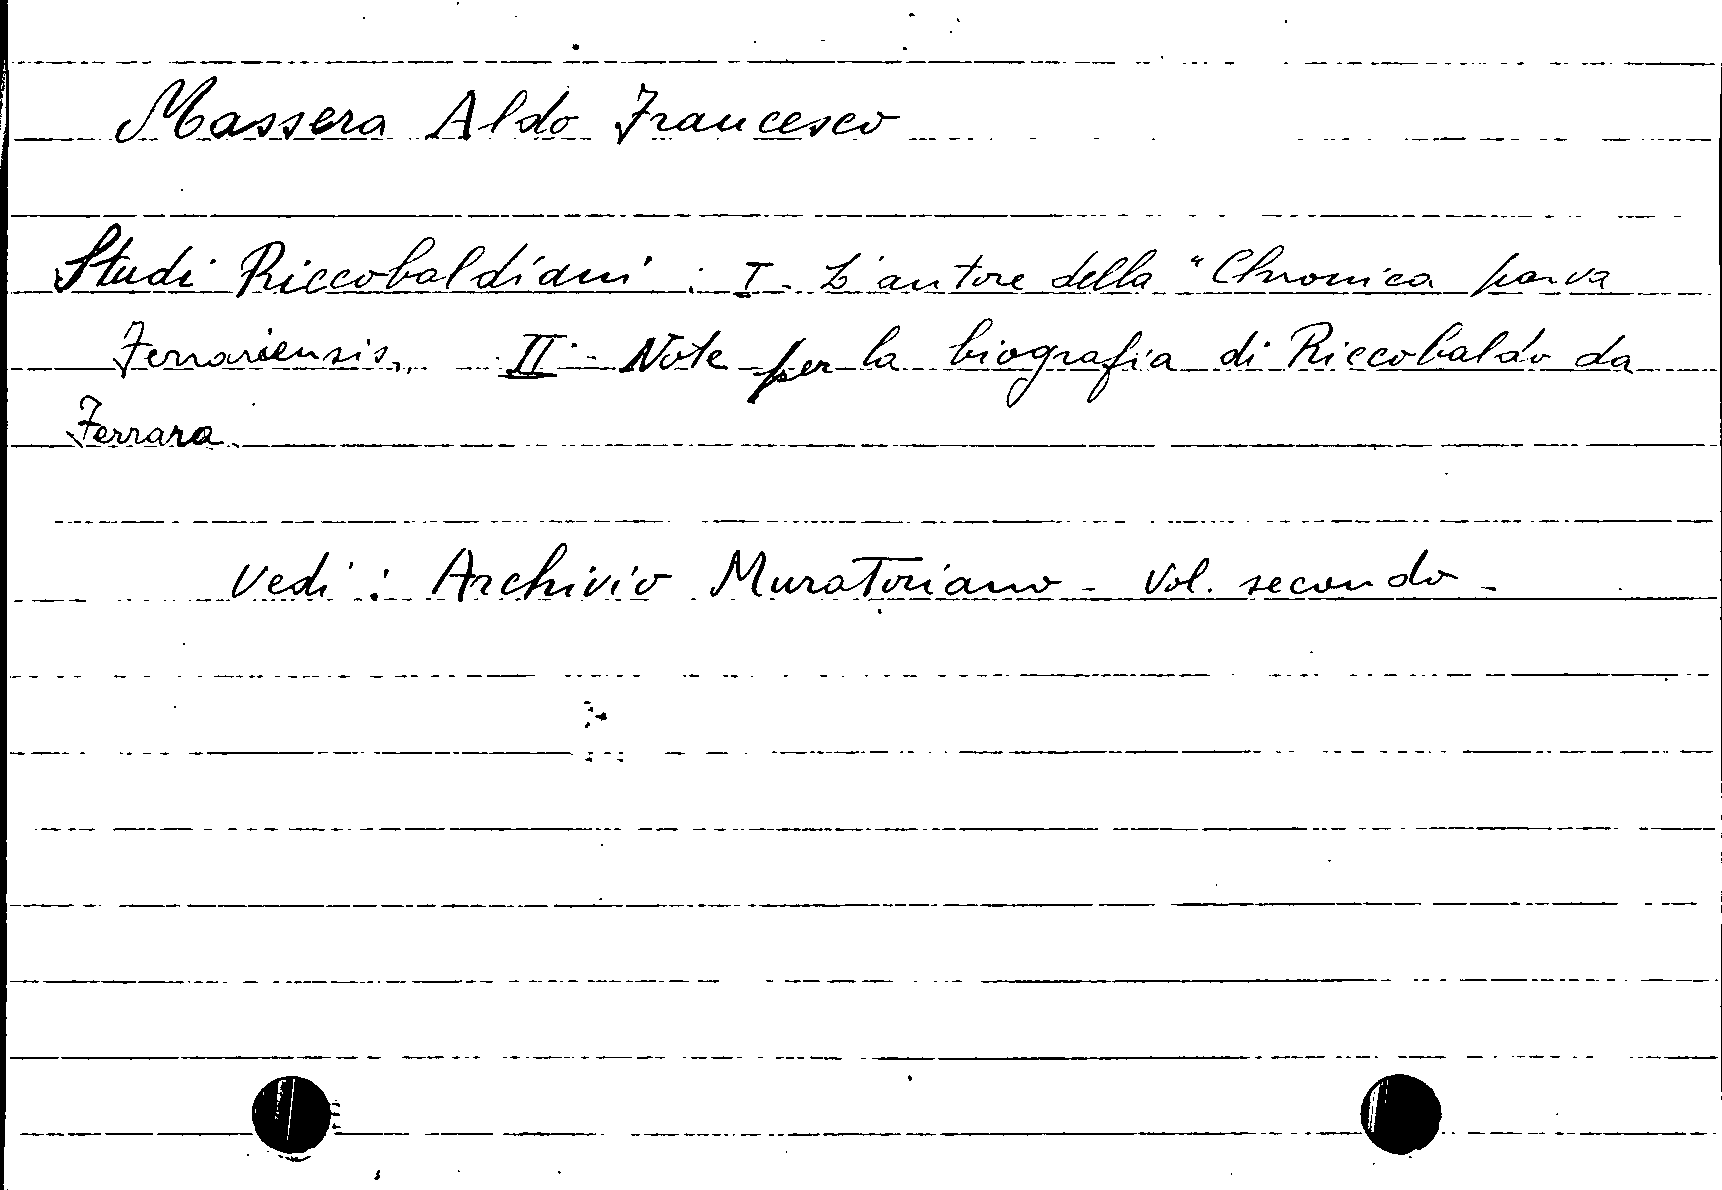 Massera Aldo Francesco
Studi Riccobaldiani : I - L'autore della "Chronica parva
Ferrariensis,, II - Note per la biografia di Riccobaldo da
Ferrara
Vedi : Archivio Muratoriano - Vol. secondo -